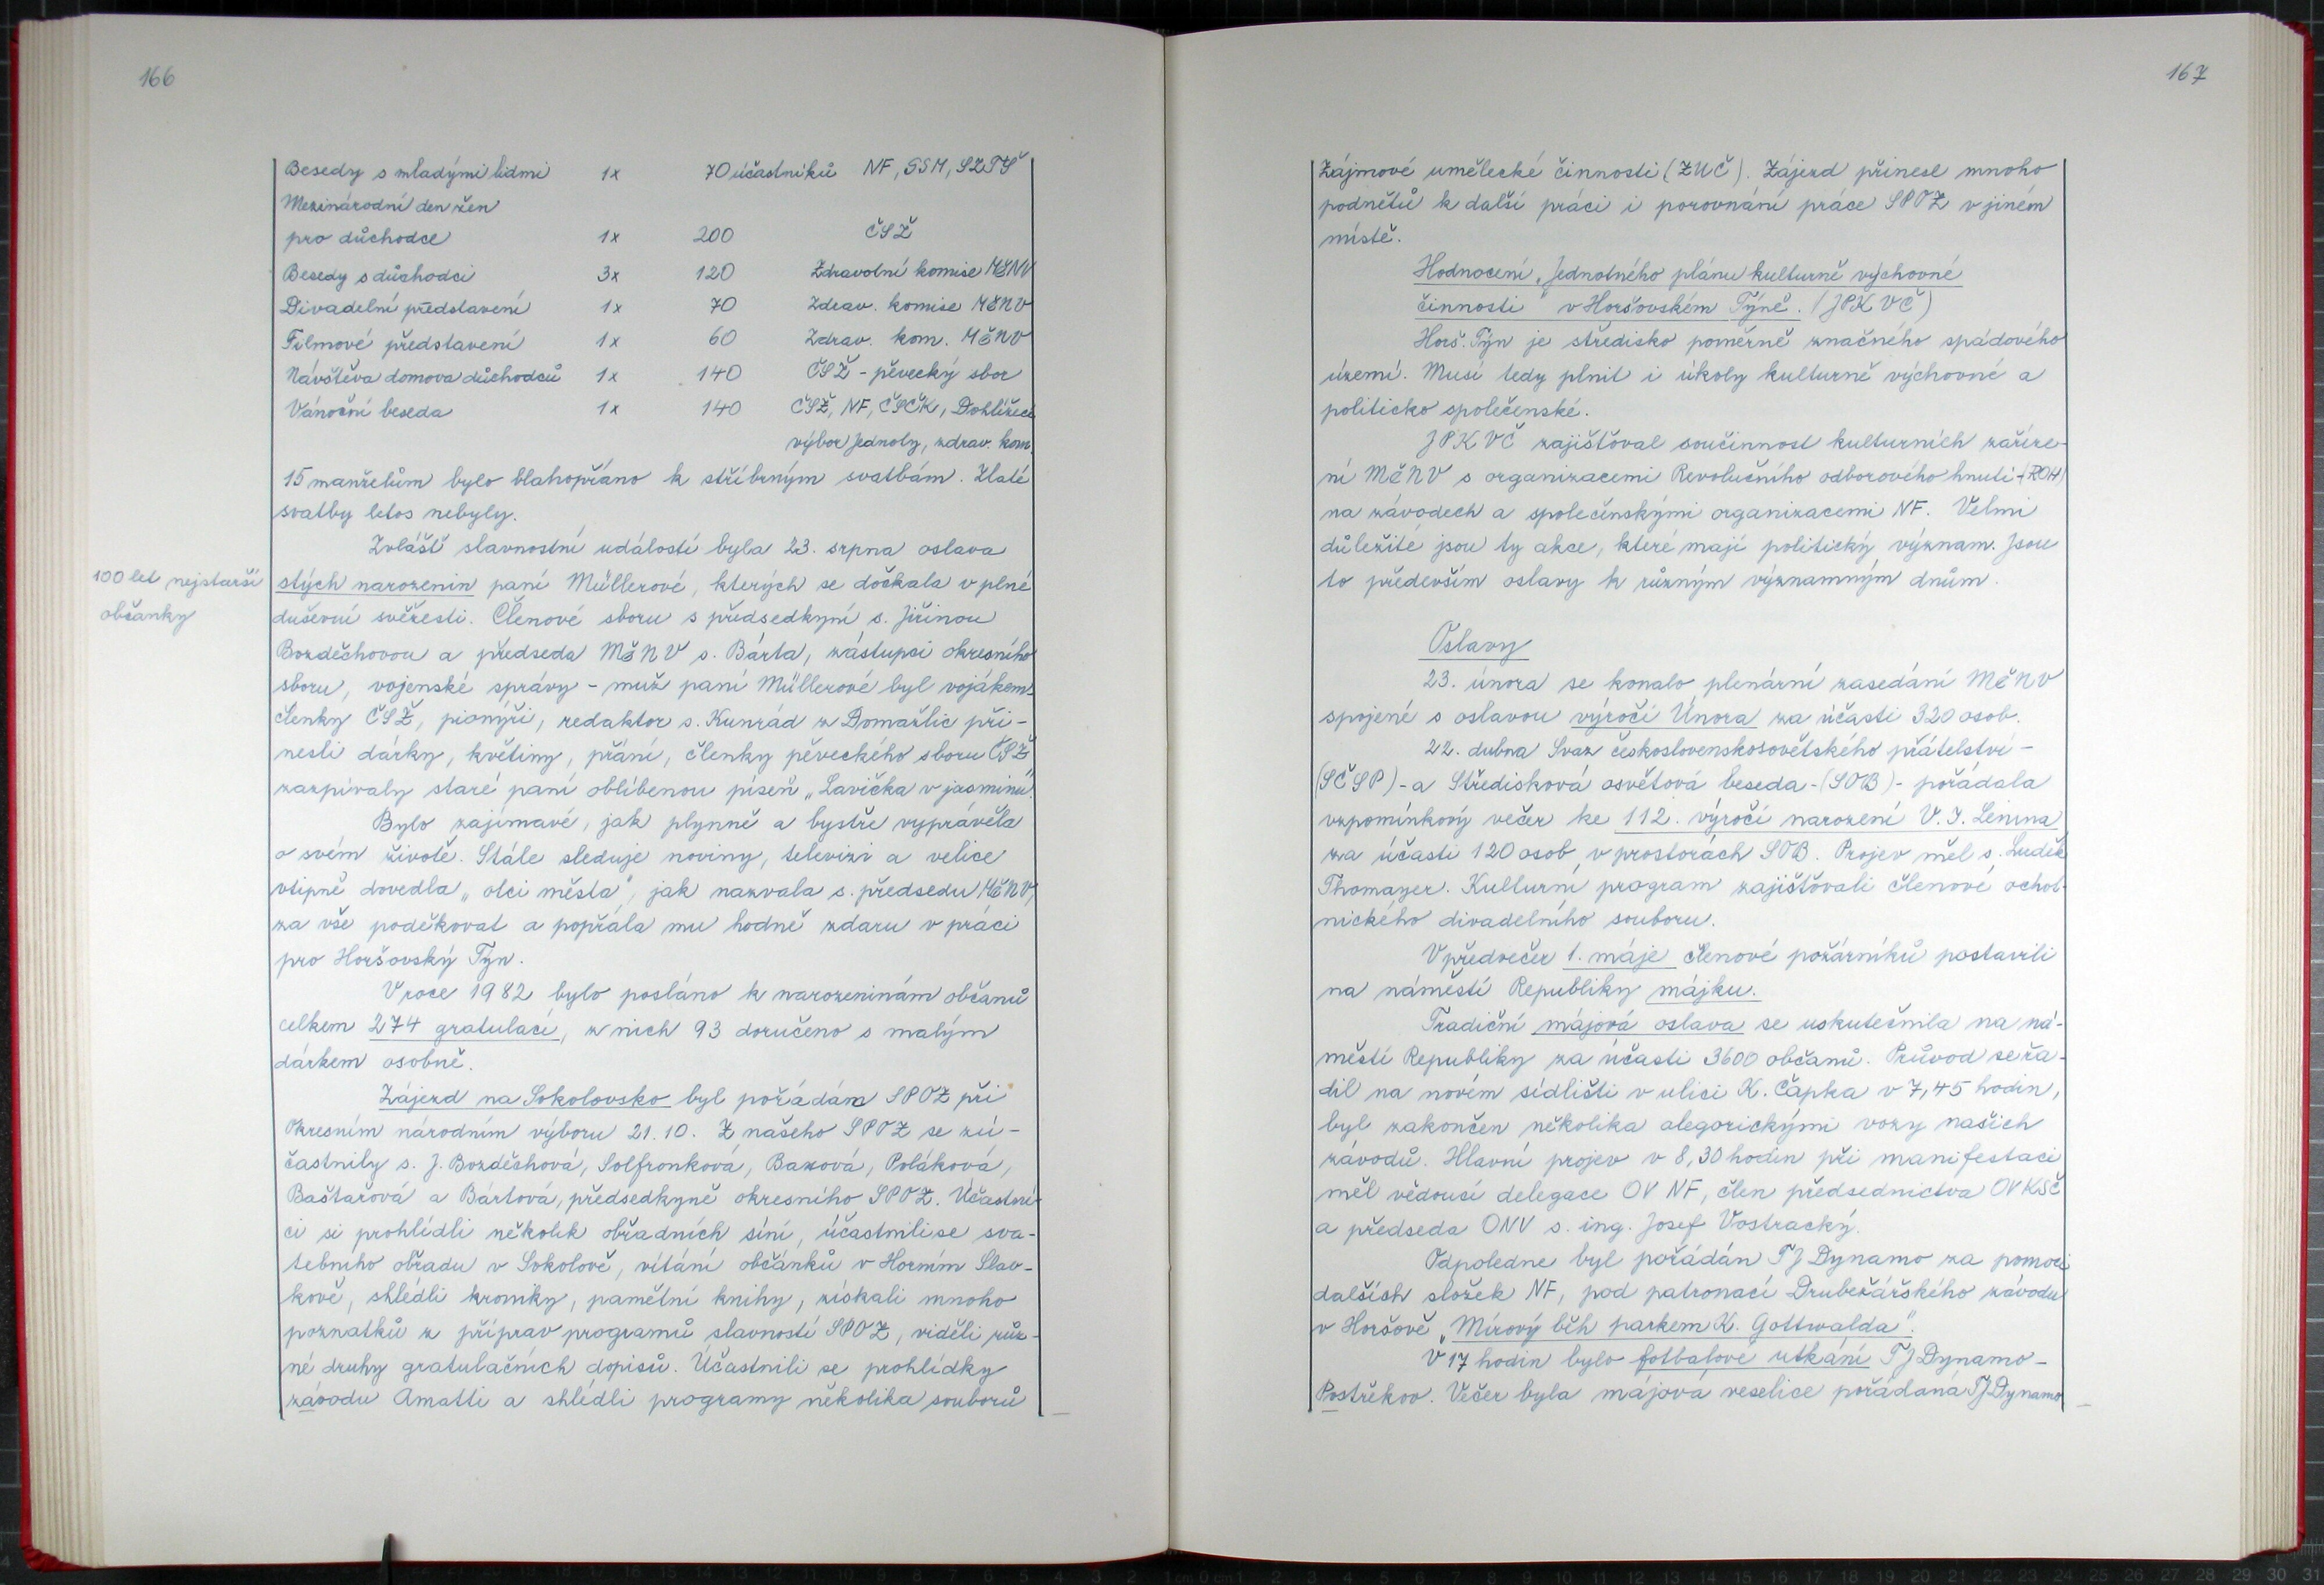 166
Besedy s mladými lidmi 1x 70 účastníků NF, SSM, SZTŠ
Mezinárodní den žen
pro důchodce 1x 200 ČSŽ
Besedy s důchodci 3x 120 Zdravotní komise MěNV
Divadelní představení 1x 70 Zdrav. komise MěNV
Filmové představení 1x 60 Zdrav. kom. MěNV
Návštěva domova důchodců 1x 140 ČSŽ - pěvecký sbor
Vánoční beseda 1x 140 ČSŽ, NF, ČSČK, Dohlížecí
výbor Jednoty, zdrav. kom.
15 manželům bylo blahopřáno k stříbrným svatbám. Zlaté
svatby letos nebyly.
Zvlášť slavnostní událostí byla 23. srpna oslava
100 let nejstarší
občanky
stých narozenin paní Müllerové, kterých se dočkala v plné
duševní svěžesti. Členové sboru s předsedkyní s. Jiřinou
Bozděchovou a předseda MěNV s. Bárta, zástupci okresního
sboru, vojenské správy - muž paní Müllerové byl vojákem,
členky ČSŽ, pionýři, redaktor s. Kunrád z Domažlic při-
nesli dárky, květiny, přání, členky pěveckého sboru ČSŽ
zazpívaly staré paní oblíbenou píseň „Lavička v jasmínu".
Bylo zajímavé, jak plynně a bystře vyprávěla
o svém životě. Stále sleduje noviny, televizi a velice
vtipně dovedla „otci města", jak nazvala s. předsedu MěNV,
za vše poděkovat a popřála mu hodně zdaru v práci
pro Horšovský Týn.
V roce 1982 bylo posláno k narozeninám občanů
celkem 274 gratulací, z nich 93 doručeno s malým
dárkem osobně.
Zájezd na Sokolovsko byl pořádán SPOZ při
Okresním národním výboru 21.10. Z našeho SPOZ se zú-
častnily s. J. Bozděchová, Solfronková, Baxová, Poláková,
Baštařová a Bártová, předsedkyně okresního SPOZ. Účastní-
ci si prohlídli několik obřadních síní, účastnili se sva-
tebního obřadu v Sokolově, vítání občánků v Horním Slav-
kově, shlédli kroniky, pamětní knihy, získali mnoho
poznatků z příprav programů slavností SPOZ, viděli růz-
né druhy gratulačních dopisů. Účastnili se prohlídky
závodu Amatti a shlédli programy několika souborů
167
Zájmové umělecké činnosti (ZUČ). Zájezd přinesl mnoho
podnětů k další práci i porovnání práce SPOZ v jiném
místě.
Hodnocení „Jednotného plánu kulturně výchovné
činnosti" v Horšovském Týně. (JPKVČ)
Horš. Týn je středisko poměrně značného spádového
území. Musí tedy plnit i úkoly kulturně výchovné a
politicko společenské.
JPKVČ zajišťoval součinnost kulturních zaříze-
ní MěNV s organizacemi Revolučního odborového hnutí - (ROH)
na závodech a společenskými organizacemi NF. Velmi
důležité jsou ty akce, které mají politický význam. Jsou
to především oslavy k různým významným dnům.
Oslavy
23. února se konalo plenární zasedání MěNV
spojené s oslavou výročí Února za účasti 320 osob.
22. dubna Svaz československosovětského přátelství -
(SČSP) - a Středisková osvětová beseda - (SOB) - pořádala
vzpomínkový večer ke 112. výročí narození V. I. Lenina
za účasti 120 osob v prostorách SOB. Projev měl s. Luděk
Thomayer. Kulturní program zajišťovali členové ochot-
nického divadelního souboru.
V předvečer 1. máje členové požárníků postavili
na náměstí Republiky májku.
Tradiční májová oslava se uskutečnila na ná-
městí Republiky za účasti 3600 občanů. Průvod se řa-
dil na novém sídlišti v ulici K. Čapka v 7,45 hodin,
byl zakončen několika alegorickými vozy našich
závodů. Hlavní projev v 8,30 hodin při manifestaci
měl vědoucí delegace OV NF, člen předsednictva OV KSČ
a předseda ONV s. ing. Josef Vostracký.
Odpoledne byl pořádán TJ Dynamo za pomoci
dalších složek NF, pod patronací Drubežářského závodu
v Horšově „Mírový běh parkem K. Gottwalda".
V 17 hodin bylo fotbalové utkání TJ Dynamo -
Postřekov. Večer byla májová veselice pořádaná TJ Dynamo